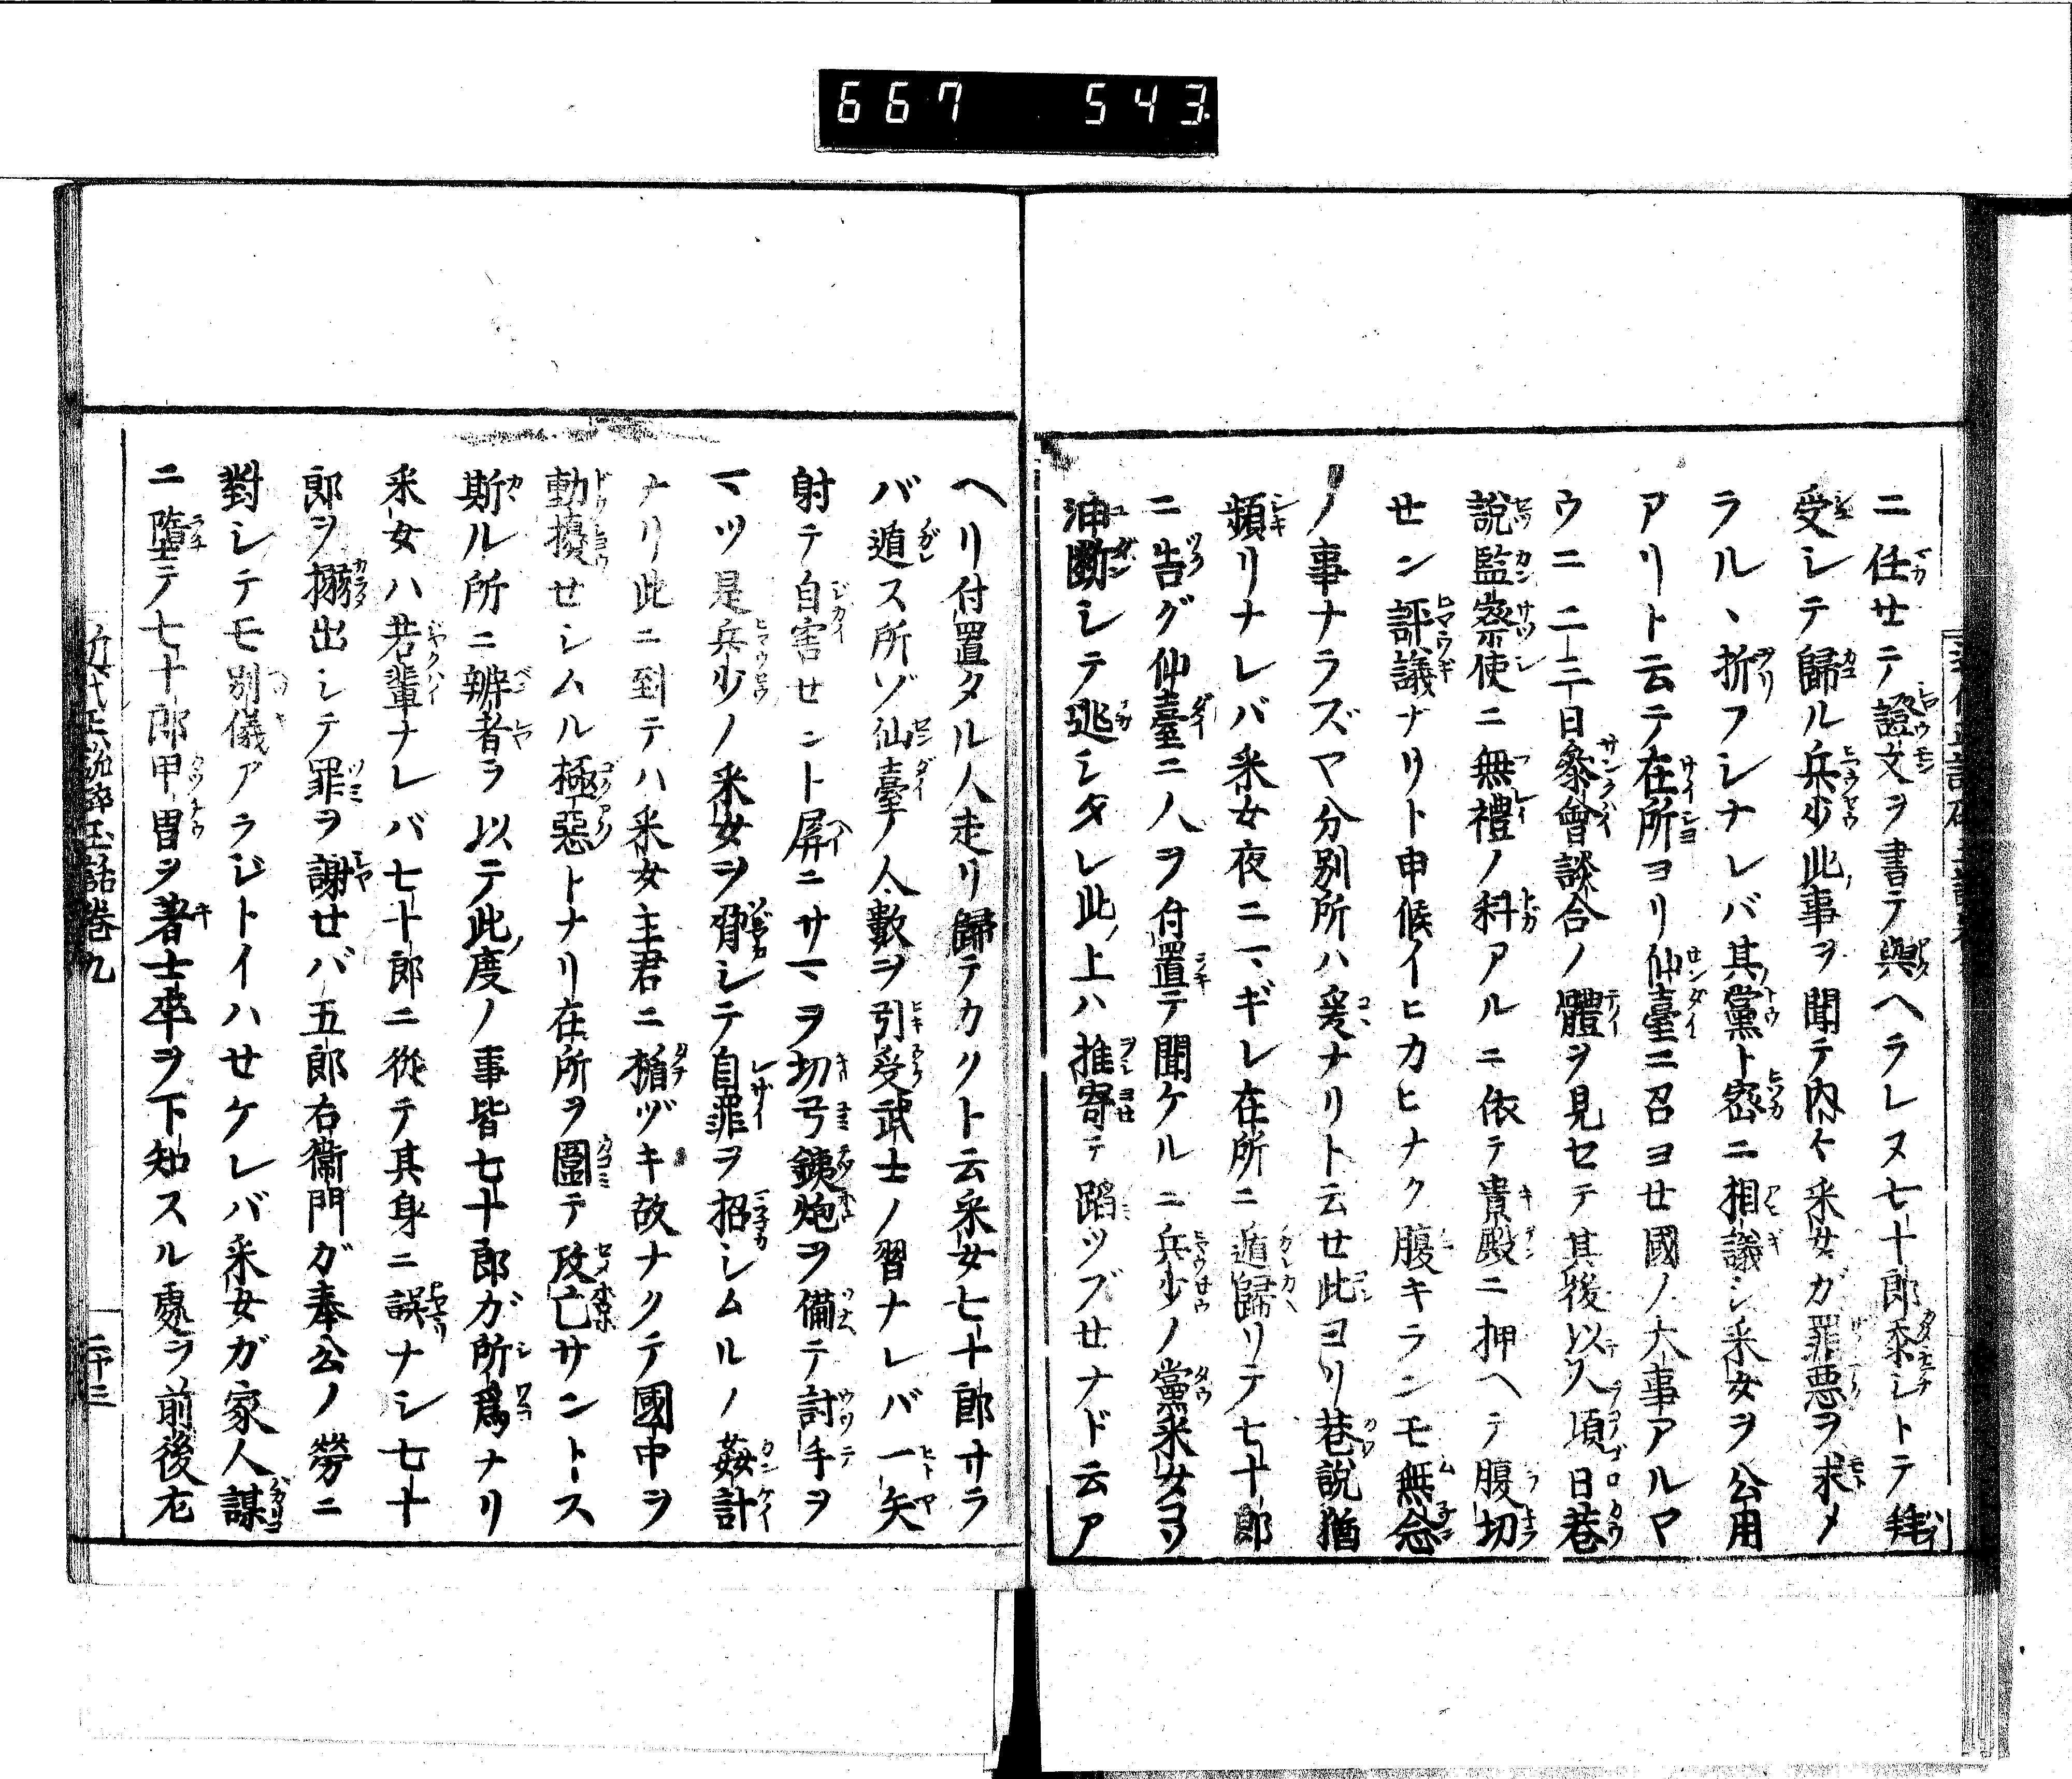 667 543
ニ任サテ證文ヲ書テ與ヘラレヌ七十郎忝シトテ拜
受シテ歸ル兵少此事ヲ聞テ内々采女ガ罪惡ヲ求メ
ラルヽ折フシナレバ其黨ト密ニ相議シ采女ヲ公用
アリト云テ在所ヨリ仙臺ニ召ヨせ國ノ大事アルマ
ウニ二三日參會談合ノ體ヲ見セテ其後以人項日巷
說監察使ニ無禮ノ科アルニ依テ貴殿ニ押ヘテ腹切
せン評議ナリト申候イヒカヒナク腹キランモ無念
ノ事ナラズマ分別所ハ爰ナリト云せ此ヨリ巷說猶
頻リナレバ采女夜ニマギレ在所ニ遁歸リテ七十郎
ニ告グ仙臺ニ人ヲ付置テ聞ケルニ兵少ノ黨采女ヨリ
油斷シテ逃シタレ此上ハ推寄テ蹈ツブせナド云ア
ヘリ付置タル人走リ歸テカクト云采女七十郎サラ
バ遁ス所ゾ仙臺ノ人數ヲ引受武士ノ習ナレバ一矢
射テ自害せント屏ニサマヲ切弓銕炮ヲ備テ討手ヲ
マツ是兵少ノ采女ヲ脅シテ自罪ヲ招シムルノ姦計
ナリ此ニ到テハ采女主君ニ楯ヅキ故ナクテ國中ヲ
動擾せシムル極惡トナリ在所ヲ圍テ攻亡サントス
斯ル所ニ辨者ラ以テ此度ノ事皆七十郎ガ所爲ナリ
采女ハ若輩ナレバ七十郎ニ從テ其身ニ誤ナシ七十
郎ヲ搦出シテ罪ヲ謝せバ五郎右衞門ガ奉公ノ勞ニ
對シテモ別儀アラジトイハせケレバ采女ガ家人謀
ニ墮テ七十郎甲冑ヲ著士卒ヲ下知スル處ラ前後左